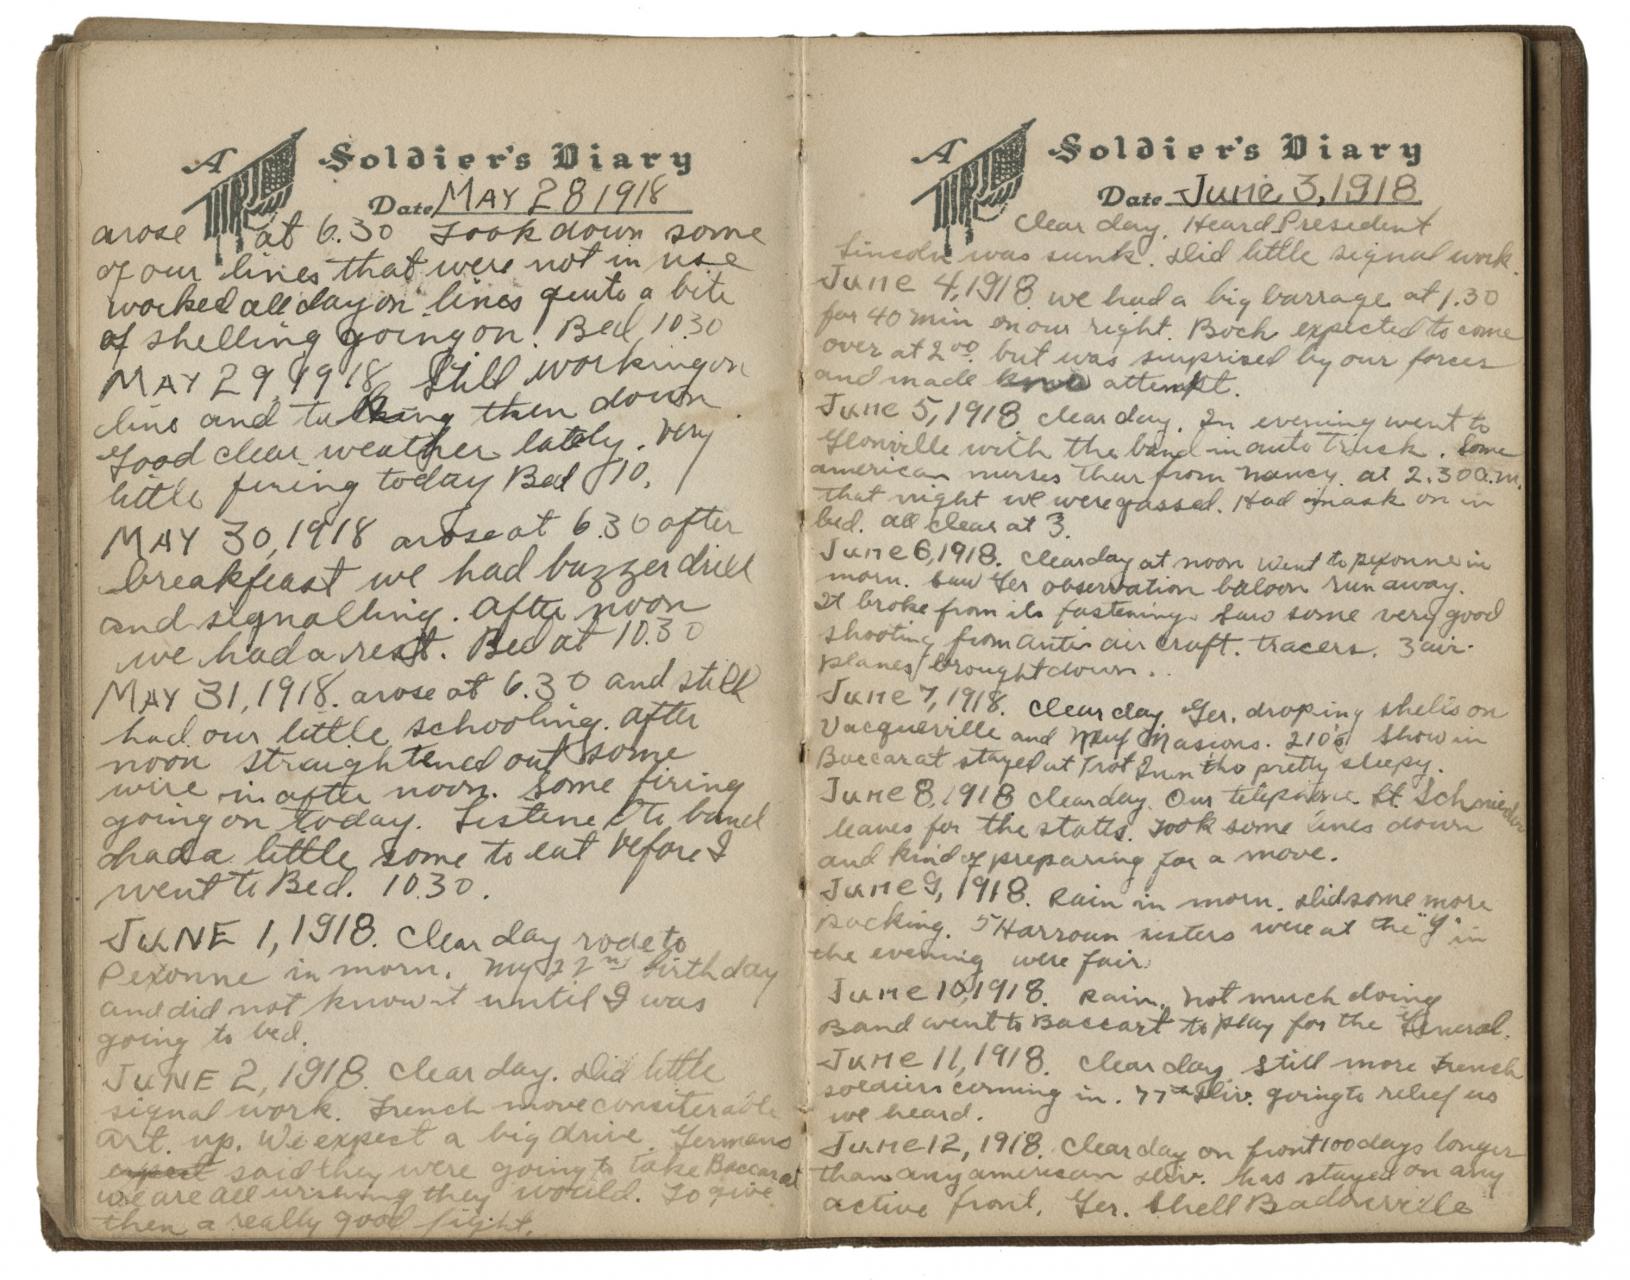 A Soldier's Diary
Date MAY 28 1918
arose at 6.30 Took down some
of our lines that were not in use
worked all day on lines quite a bite
of shelling going on. Bed 10.30
MAY 29, 1918 Still working on
line and taking then down
Good clear weather lately. Very
little firing today Bed 10.
MAY 30, 1918 arose at 6.30 after
breakfeast we had buzzer drill
and signalling. After noon
we had a rest. Bed at 10.30
MAY 31, 1918. arose at 6.30 and still
had our little schooling. After
noon straightened out some
wire in after noon. Some firing
going on today. Listened to band
had a little some to eat before I
went to Bed. 10.30.
JUNE 1, 1918. Clear day rode to
Pexonne in morn. My 22nd birthday
and did not know it until I was
going to bed.
JUNE 2, 1918. Clear day. Did little
signal work. French move considerable
art. up. We expect a big drive. Germans
expect said they were going to take Baccarat
we are all wishing they would. To give
then a really good fight.
A Soldier's Diary
Date June 3, 1918
Clear day. Heard President
Lincoln was sunk. Did little signal work.
June 4, 1918 we had a big barrage at 1.30
for 40 min on our right. Boch expected to come
over at 2 00 but was surprised by our forces
and made no attempt.
June 5, 1918. Clear day. In evening went to
Glonville with the band in auto truck. Some
american nurses thar from Nancy. at 2.30 a.m.
that night we were gassed. Had mask on in
bed. all clear at 3.
June 6, 1918. Clear day at noon went to pexonne in
morn. Saw Ger observation baloon run away.
It broke from its fastening. Saw some very good
shooting from antie air craft. tracers. 3 air-
planes brought down..
June 7, 1918. Clear day. Ger. droping shells on
Vacqueville and Neuf Masions. 210's Show in
Baccarat stayed at Trot Inn tho pretty sleepy.
June 8, 1918 clear day. Our telephone Lt. Schneider
leaves for the states. Took some lines down
and kind of preparing for a move.
June 9, 1918. Rain in morn. Did some more
packing. 5 Harroun sisters were at the "Y" in
the evening were fair
June 10, 1918. Rain. Not much doing
Band went to Baccart to play for the General.
June 11, 1918. Clear day still more French
soldiers comming in. 77th Div. going to relief us
we heard.
June 12, 1918. Clear day on front 100 days longer
than any american div. has stayed on any
active front. Ger. Shell Badonville